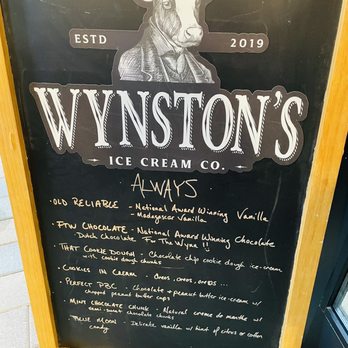 ESTD 2019
WYNSTON'S
ICE CREAM CO.
ALWAYS
• OLD RELIABLE - National Award Winning Vanilla
- Madagascar Vanilla
• FTW CHOCOLATE - National Award Winning Chocolate
- Dutch Chocolate For The Wynn !!
• THAT COOKIE DOUGH - Chocolate chip cookie dough ice-cream
with cookie dough chunks
• COOKIES IN CREAM - oreos, oreos, oreos ...
• PERFECT PBC - Chocolate + peanut butter ice-cream w/
chopped peanut butter cups
• MINT CHOCOLATE CHUNK - Natural creme de menthe w/
semi-sweet chocolate chunks
• BLUE MOON - Delicate vanilla w/ hint of citrus or cotton
candy